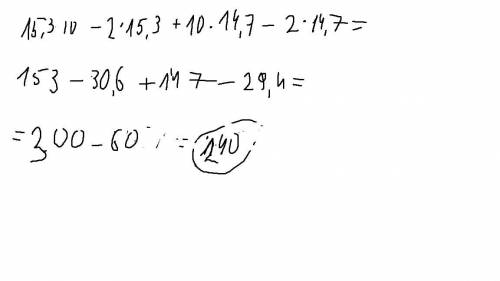 15,3 10 - 2·15,3 + 10·14,7 - 2·14,7 =
153 - 30,6 + 147 - 29,4 =
= 300 - 60 = 240